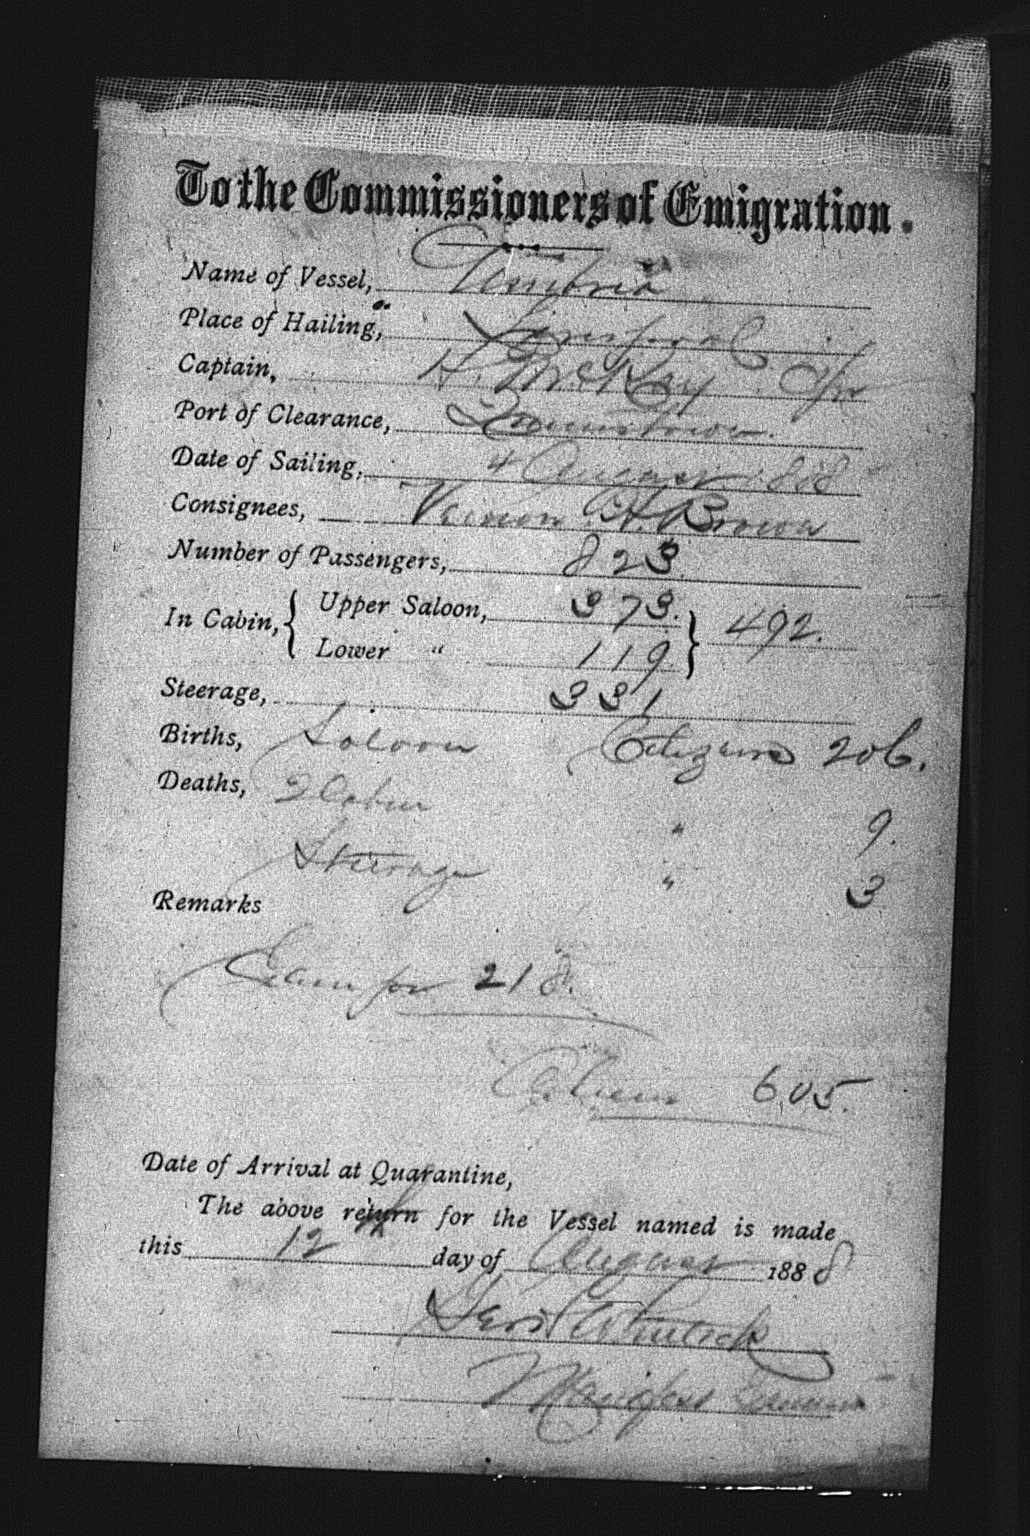 To the Commissioners of Emigration.
Name of Vessel, Umbria
Place of Hailing, Liverpool
Captain, H. McKay
Port of Clearance, Queenstown.
Date of Sailing, 4 August 1888
Consignees, Vernon H. Brown
Number of Passengers, 823.
In Cabin, { Upper Saloon, 373. } 492.
Lower " 119
Steerage, 331
Births, Saloon Citizens 206.
Deaths, 2 Cabin " 9.
Steerage " 3
Remarks
218.
Aliens 605.
Date of Arrival at Quarantine,
The above return for the Vessel named is made
this 12 day of August 1888
Manifest